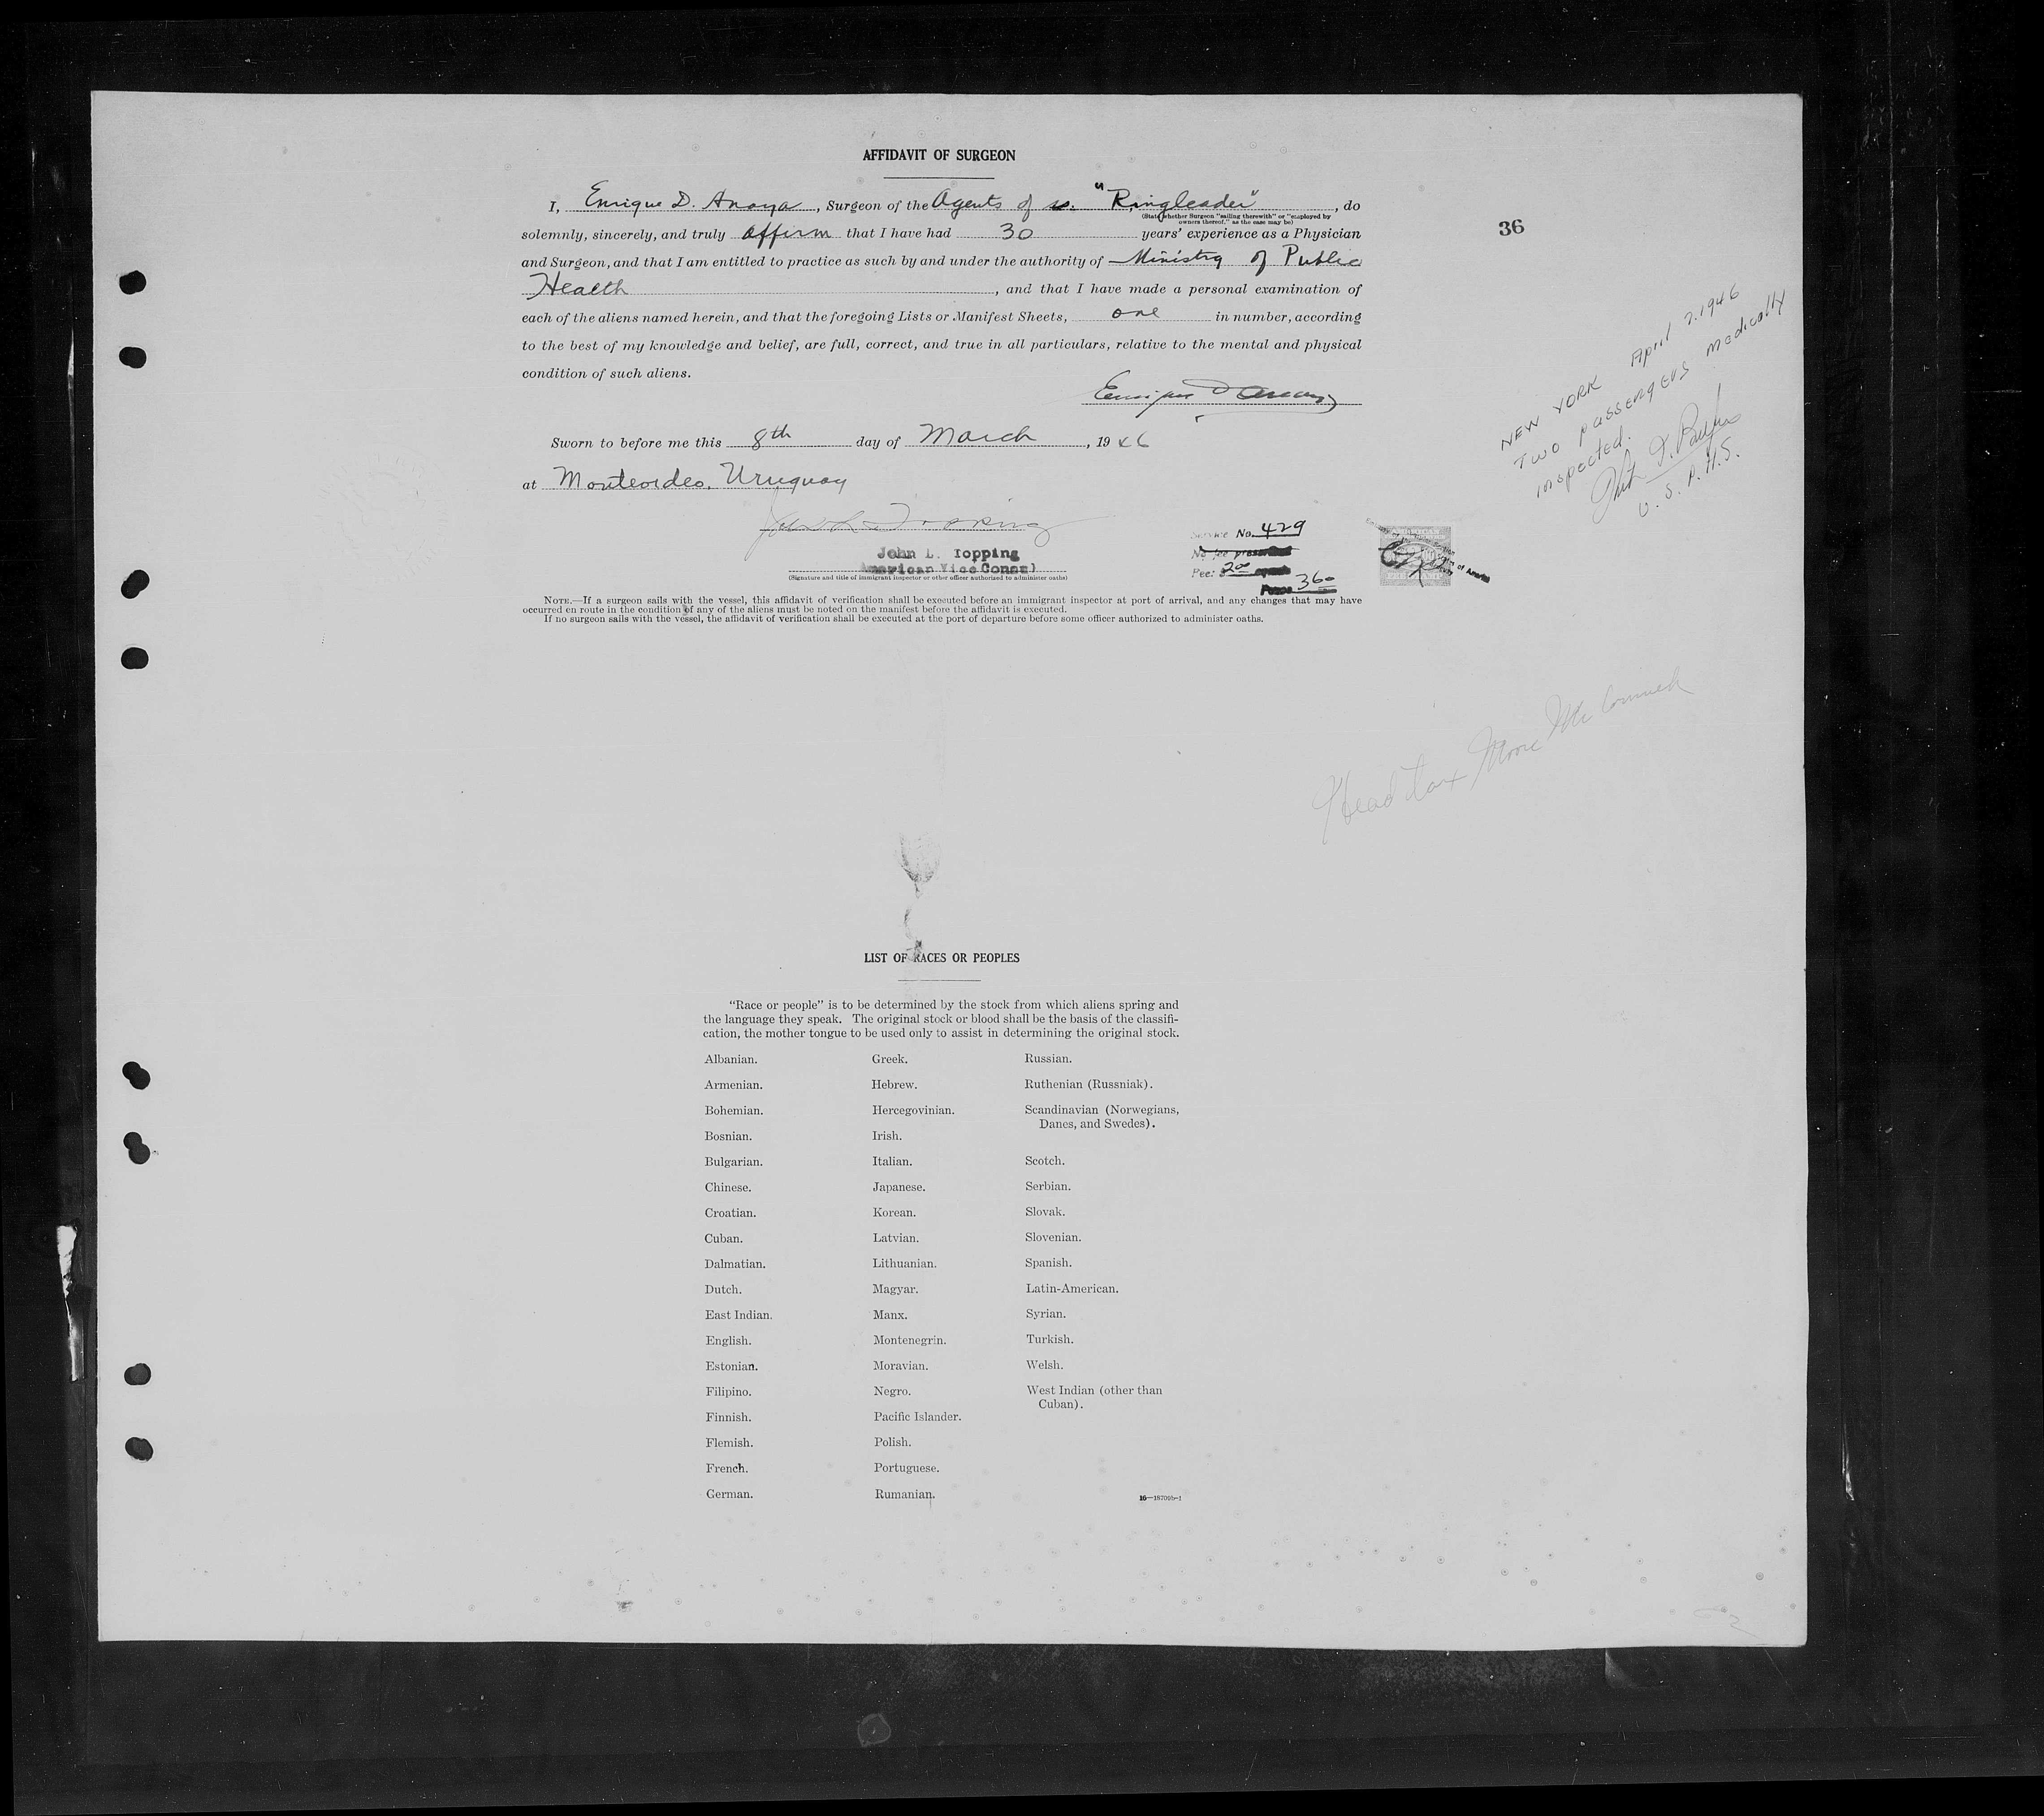 AFFIDAVIT OF SURGEON
36
I, Enrique D. Anaya, Surgeon of the Agents of ss. "Ringleader", do
(State whether Surgeon "sailing therewith" or "employed by
owners thereof," as the case may be)
solemnly, sincerely, and truly affirm that I have had 30 years' experience as a Physician
and Surgeon, and that I am entitled to practice as such by and under the authority of Ministry of Public
Health, and that I have made a personal examination of
each of the aliens named herein, and that the foregoing Lists or Manifest Sheets, one in number, according
to the best of my knowledge and belief, are full, correct, and true in all particulars, relative to the mental and physical
condition of such aliens.
Sworn to before me this 8th day of March, 1946
at Montevideo, Uruguay
John L. Topping
John L. Topping
American Vice Consul
(Signature and title of immigrant inspector or other officer authorized to administer oaths)
Service No. 429
No fee prescribed
Fee: $ 2.00
Pesos 3.60
NEW YORK April 2. 1946
Two passengers medically
inspected.
U. S. P. H. S.
NOTE.—If a surgeon sails with the vessel, this affidavit of verification shall be executed before an immigrant inspector at port of arrival, and any changes that may have
occurred en route in the condition of any of the aliens must be noted on the manifest before the affidavit is executed.
If no surgeon sails with the vessel, the affidavit of verification shall be executed at the port of departure before some officer authorized to administer oaths.
Head tax Moore McCormack
LIST OF RACES OR PEOPLES
"Race or people" is to be determined by the stock from which aliens spring and
the language they speak. The original stock or blood shall be the basis of the classifi-
cation, the mother tongue to be used only to assist in determining the original stock.
Albanian.
Armenian.
Bohemian.
Bosnian.
Bulgarian.
Chinese.
Croatian.
Cuban.
Dalmatian.
Dutch.
East Indian.
English.
Estonian.
Filipino.
Finnish.
Flemish.
French.
German.
Greek.
Hebrew.
Hercegovinian.
Irish.
Italian.
Japanese.
Korean.
Latvian.
Lithuanian.
Magyar.
Manx.
Montenegrin.
Moravian.
Negro.
Pacific Islander.
Polish.
Portuguese.
Rumanian.
Russian.
Ruthenian (Russniak).
Scandinavian (Norwegians,
Danes, and Swedes).
Scotch.
Serbian.
Slovak.
Slovenian.
Spanish.
Latin-American.
Syrian.
Turkish.
Welsh.
West Indian (other than
Cuban).